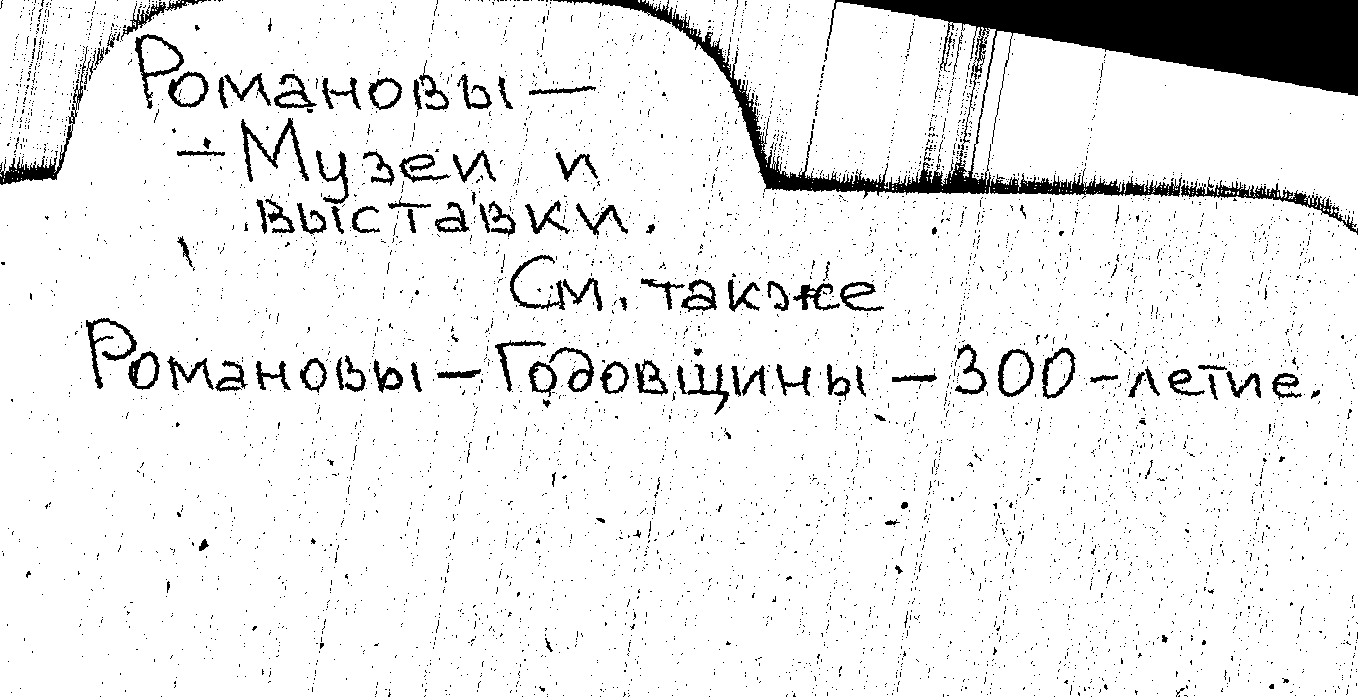 Романовы —
— Музеи и
выставки.
См. также
Романовы — Годовщины — 300-летие.